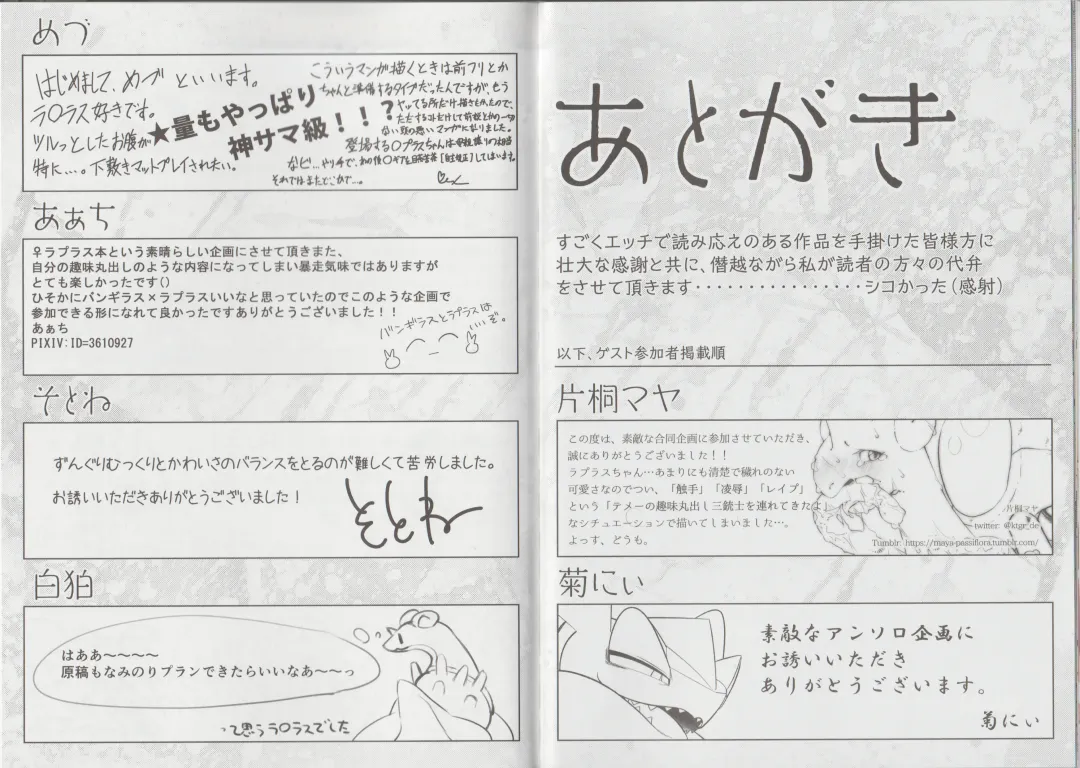 あとがき
すごくエッチで読み応えのある作品を手掛けた皆様方に
壮大な感謝と共に、僭越ながら私が読者の方々の代弁
をさせて頂きます・・・・・・・・・・・・・・・・シコかった(感射)
以下、ゲスト参加者掲載順
片桐マヤ
この度は、素敵な合同企画に参加させていただき、
誠にありがとうございました！！
ラプラスちゃん…あまりにも清楚で穢れのない
可愛さなのでつい、「触手」「凌辱」「レイプ」
という「テメーの趣味丸出し三銃士を連れてきたよ」
なシチュエーションで描いてしまいました…。
よっす、どうも。
片桐マヤ
twitter: @ktgr_de
Tumblr: https://maya-passiflora.tumblr.com/
菊にぃ
素敵なアンソロ企画に
お誘いいただき
ありがとうございます。
菊にぃ
めづ
はじめまして、めづ といいます。
ラ〇ラス好きです。
ツルっとしたお腹が
特に…。下敷きマットプレイされたい。
★量もやっぱり
神サマ級！！？
こういうマンガ描くときは前フリとか
ちゃんと準備するタイプだったんですが、もう
ヤッてる所だけ描きもかったので、
それではまたどこかで…。
あぁち
♀ラプラス本という素晴らしい企画にさせて頂きまた、
自分の趣味丸出しのような内容になってしまい暴走気味ではありますが
とても楽しかったです()
ひそかにバンギラス×ラプラスいいなと思っていたのでこのような企画で
参加できる形になれて良かったですありがとうございました！！
あぁち
PIXIV:ID=3610927
バンギラスとラプラスは
いいぞ。
そとね
ずんぐりむっくりとかわいさのバランスをとるのが難しくて苦労しました。
お誘いいただきありがとうございました！
そとね
白狛
はああ～～～～
原稿もなみのりプランできたらいいなあ～～っ
って思うラ〇ラスでした